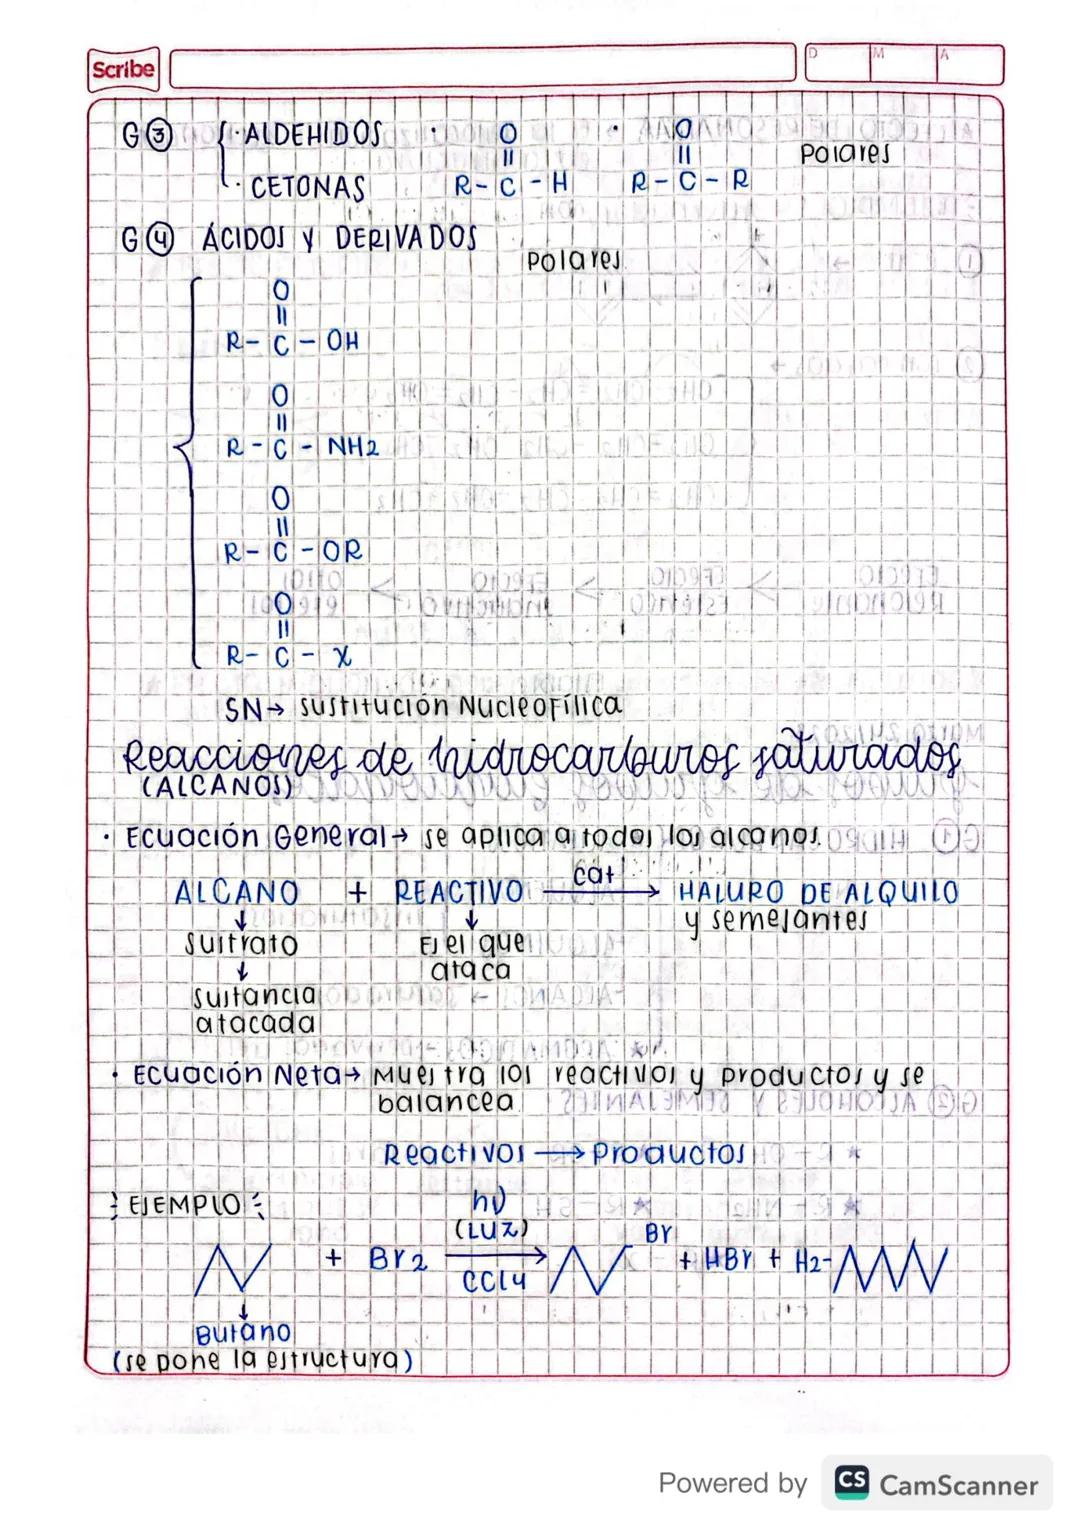 Scribe
D M A
G③ · ALDEHIDOS · O · O Polares
|| ||
· CETONAS R-C-H R-C-R
G④ ÁCIDOS y DERIVADOS
Polares
O
||
R-C-OH
O
||
R-C-NH2
O
||
R-C-OR
O
||
R-C-X
SN→ sustitución Nucleofílica
Reacciones de hidrocarburos saturados
(ALCANOS)
· Ecuación General→ se aplica a todos los alcanos.
cat
ALCANO + REACTIVO → HALURO DE ALQUILO
y semejantes
↓ ↓
sustrato Es el que
↓ ataca
sustancia
atacada
· Ecuación Neta→ Muestra los reactivos y productos y se
balancea
Reactivos → Productos
EJEMPLO hν
(LUZ) Br
+ Br2 → + HBr + H2-
CCl4
↓
Butano
(se pone la estructura)
Powered by CS CamScanner